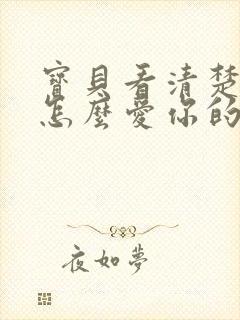 寶貝看清楚
怎麼愛你的
夜如夢